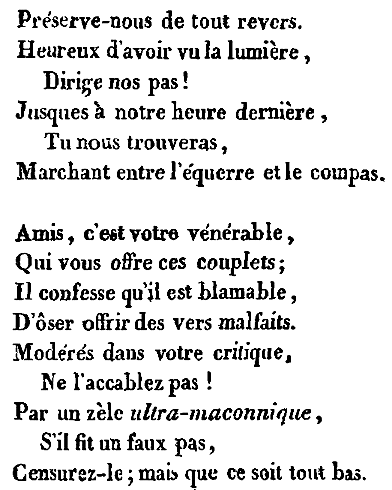 Préserve-nous de tout revers.
Heureux d'avoir vu la lumière,
Dirige nos pas!
Jusques à notre heure dernière,
Tu nous trouveras,
Marchant entre l'équerre et le compas.
Amis, c'est votre vénérable,
Qui vous offre ces couplets;
Il confesse qu'il est blamable,
D'ôser offrir des vers malfaits.
Modérés dans votre critique,
Ne l'accablez pas!
Par un zèle ultra-maconnique,
S'il fit un faux pas,
Censurez-le; mais que ce soit tout bas.